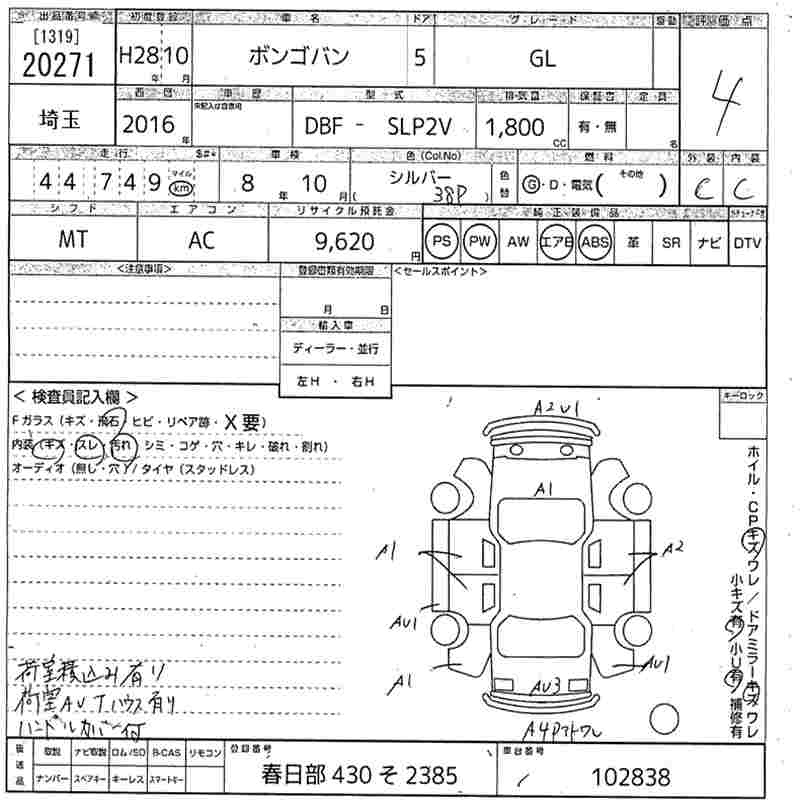 出品番号 初度登録 車名 ドア グレード 評価点
[1319]
20271 H28年 10月 ボンゴバン 5 GL 4
西暦 車歴 型式 排気量 保証書 定員
未記入は自家用
埼玉 2016年 DBF - SLP2V 1,800CC 有・無 名
走行 S#* 車検 色(Col.No) 燃料 外装 内装
44749 マイル km 8年 10月 シルバー ( 38P ) 色替 G・D・電気( その他 ) C C
シフト エアコン リサイクル預託金 純正装備品
MT AC 9,620円 PS PW AW エアB ABS 革 SR ナビ DTV
<注意事項> 登録書類有効期限 <セールスポイント>
月 日
輸入車
ディーラー・並行
左H ・ 右H
< 検査員記入欄 > キーロック
Fガラス(キズ・飛石・ヒビ・リペア跡・X要)
内装(キズ・スレ・汚れ・シミ・コゲ・穴・キレ・破れ・割れ)
オーディオ(無し・穴)/タイヤ(スタッドレス)
A2U1
A1
A1 A2
AU1
A1 AU1
AU3
ホイル・CPキズ/ワレ/ドアミラーキズ/ワレ
小キズ有/小U有/補修有
荷室積込み有り
ハンドルカバー付
後送品 取説 ナビ取説 ロム/SD B-CAS リモコン 登録番号 車台番号
ナンバー スペアキー キーレス スマートキー 春日部 430 そ 2385 102838